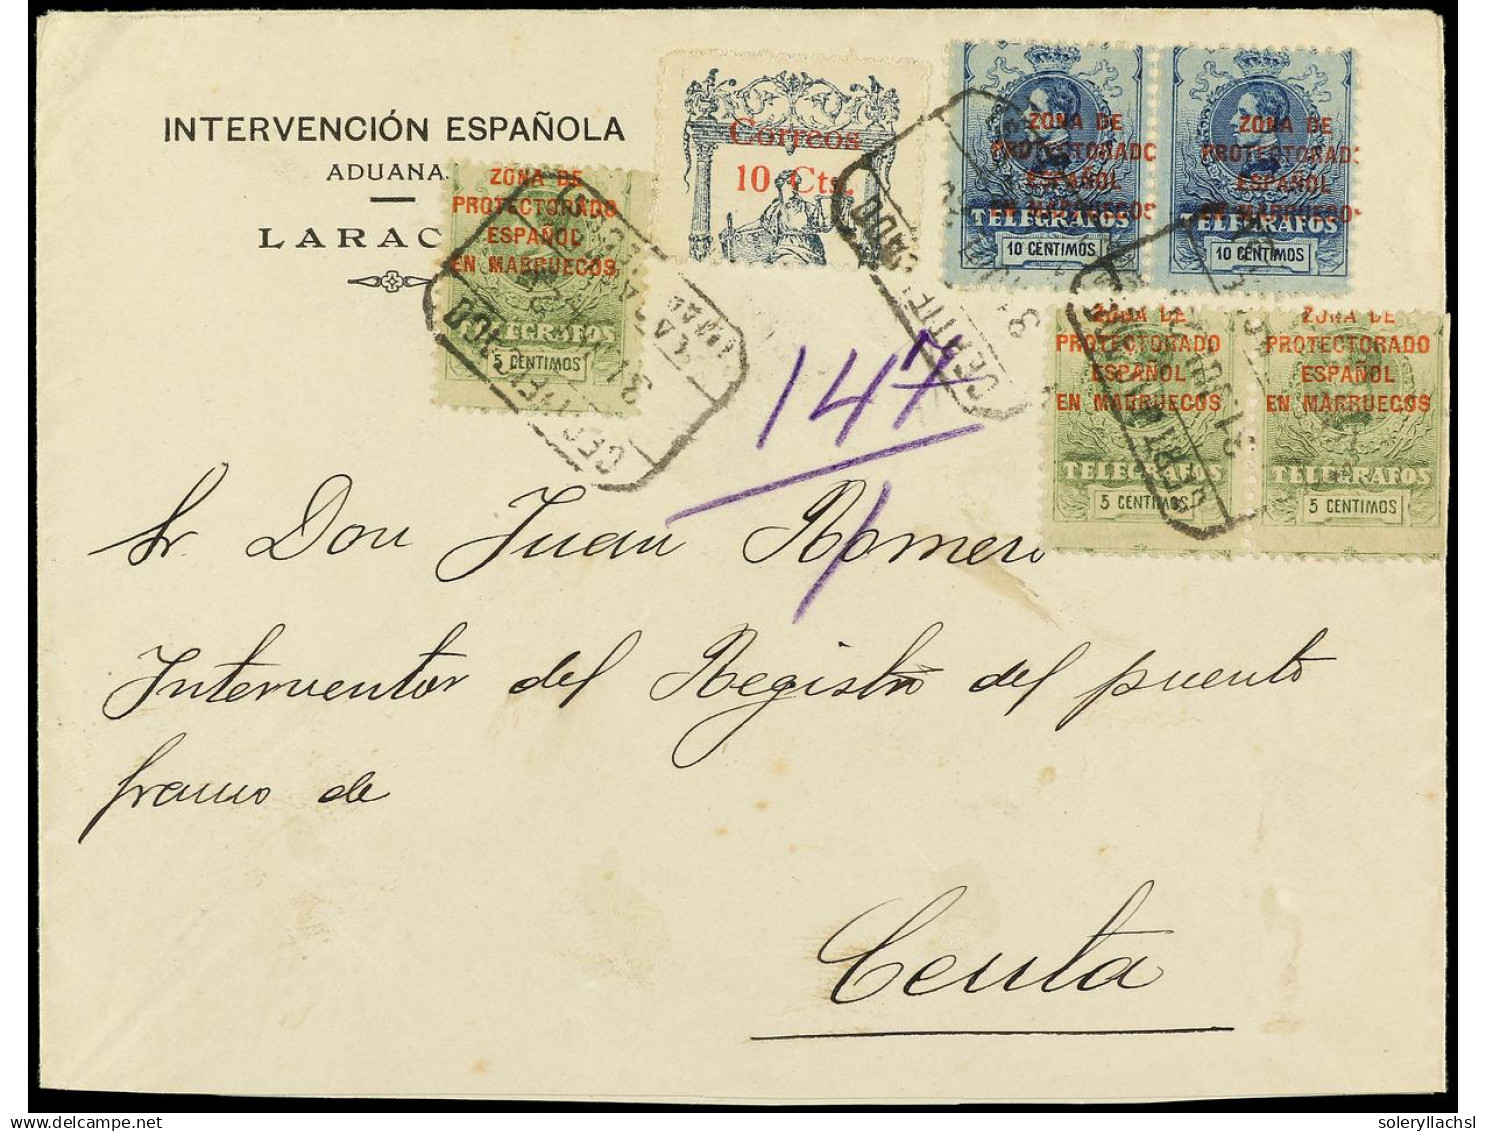 INTERVENCIÓN ESPAÑOLA
ADUANA
LARAC
ZONA DE
PROTECTORADO
ESPAÑOL
EN MARRUECOS
TELEGRAFOS
5 CENTIMOS
Correos
10 Cts.
ZONA DE
PROTECTORADO
ESPAÑOL
EN MARRUECOS
TELEGRAFOS
10 CENTIMOS
ZONA DE
PROTECTORADO
ESPAÑOL
EN MARRUECOS
TELEGRAFOS
10 CENTIMOS
ZONA DE
PROTECTORADO
ESPAÑOL
EN MARRUECOS
TELEGRAFOS
5 CENTIMOS
ZONA DE
PROTECTORADO
ESPAÑOL
EN MARRUECOS
TELEGRAFOS
5 CENTIMOS
147
Sr. Don Juan Romero
Interventor del Registro del puento
franco de
Ceuta
soleryllachsl